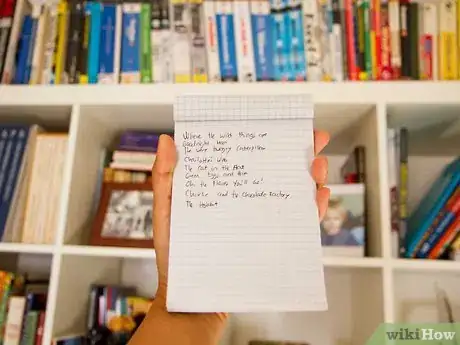 Where the wild things are
Goodnight Moon
The very hungry Caterpillar
Charlotte's Web
The Cat in the Hat
Green Eggs and Ham
Oh, the Places You'll Go!
Charlie and the Chocolate Factory
The Hobbit
wikiHow